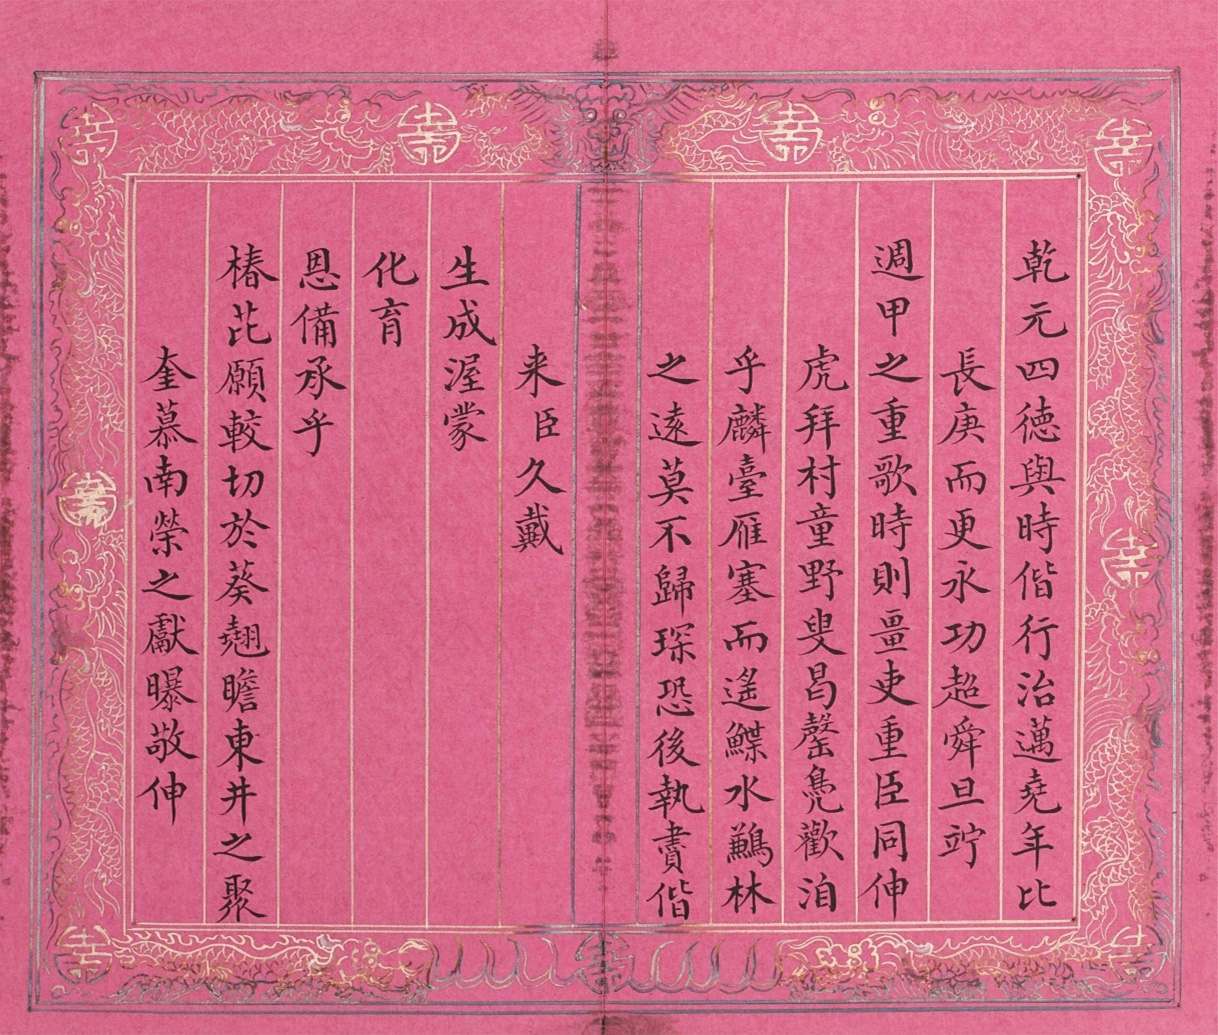 乾元四徳與時偕行治邁堯年比
長庚而更永功超舜旦竚
週甲之重歌時則畺吏重臣同伸
虎拜村童野叟曷罄鳧歡洎
乎麟臺雁塞而遙鰈水鷫林
之遠莫不歸琛恐後執賮偕
来臣久戴
生成渥蒙
化育
恩備承乎
椿芘願較切於葵翹瞻東井之聚
奎慕南榮之獻曝敬伸